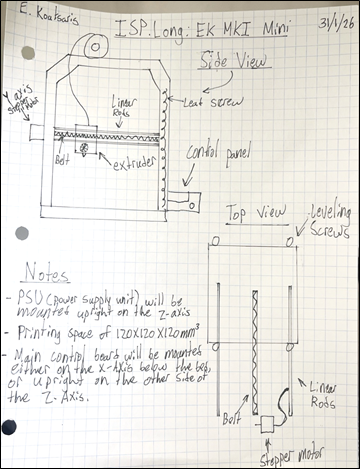 E. Koutsaris
ISP.Long: EK MKI Mini
31/1/26
Side View
Y axis
stepper
motor
Linear
Rods
Leat screw
Belt
extruder
control panel
Top View
Leveling
Screws
Linear
Rods
Bolt
Stepper motor
Notes
- PSU (power supply unit) will be
mountes upright on the Z-axis
- Printing space of 120X120X120mm³
- Main control board will be mountes
either on the X-Axis below the bed,
or upright on the other side of
the Z-Axis.